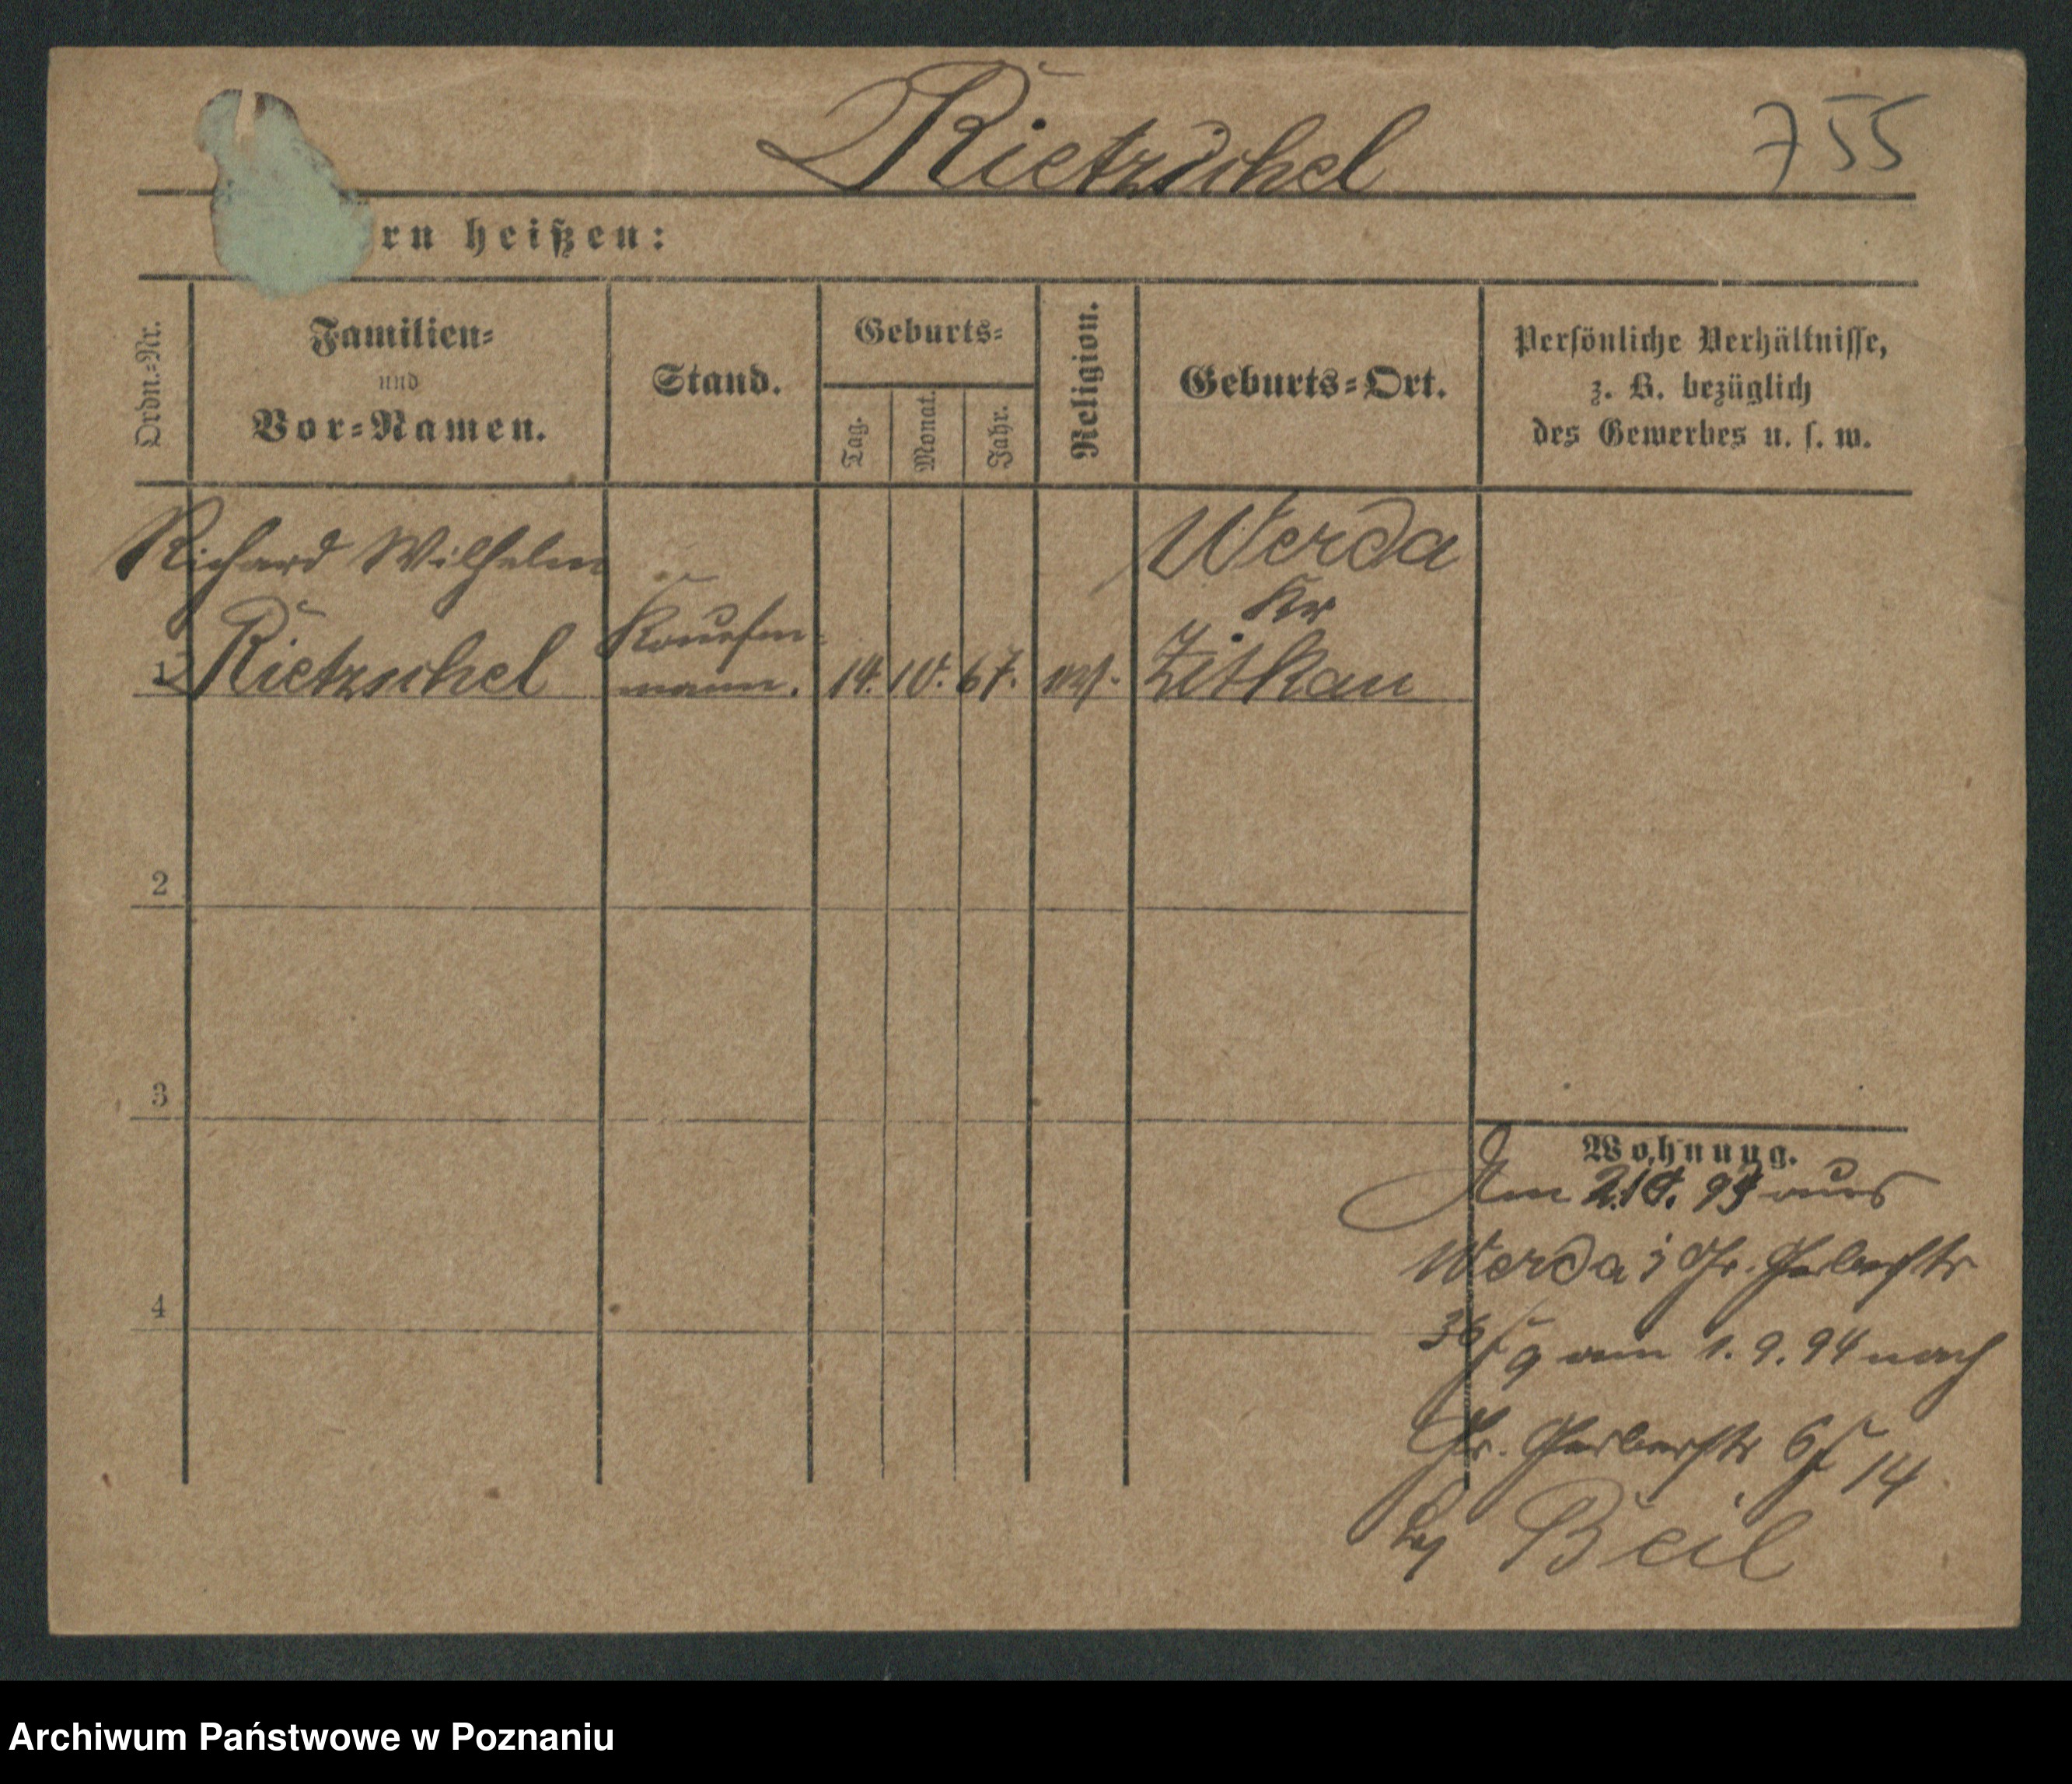 Rietzschel 755
rn heißen:
Ordn.-Nr.
Familien-
und
Vor-Namen.
Stand.
Geburts-
Tag. Monat. Jahr.
Religion.
Geburts-Ort.
Persönliche Verhältnisse,
z. B. bezüglich
des Gewerbes u. s. w.
Richard Wilhelm
1 Rietzschel
Kaufm-
mann.
14. 10. 67. ev.
Werda
Kr
Zitkau
2
3
4
Wohnung.
Am aus
Werda Gr. Gerberstr
36 / 9 am 1. 9. 94 nach
Gr. Gerberstr 6 / 14
by Beil
Archiwum Państwowe w Poznaniu